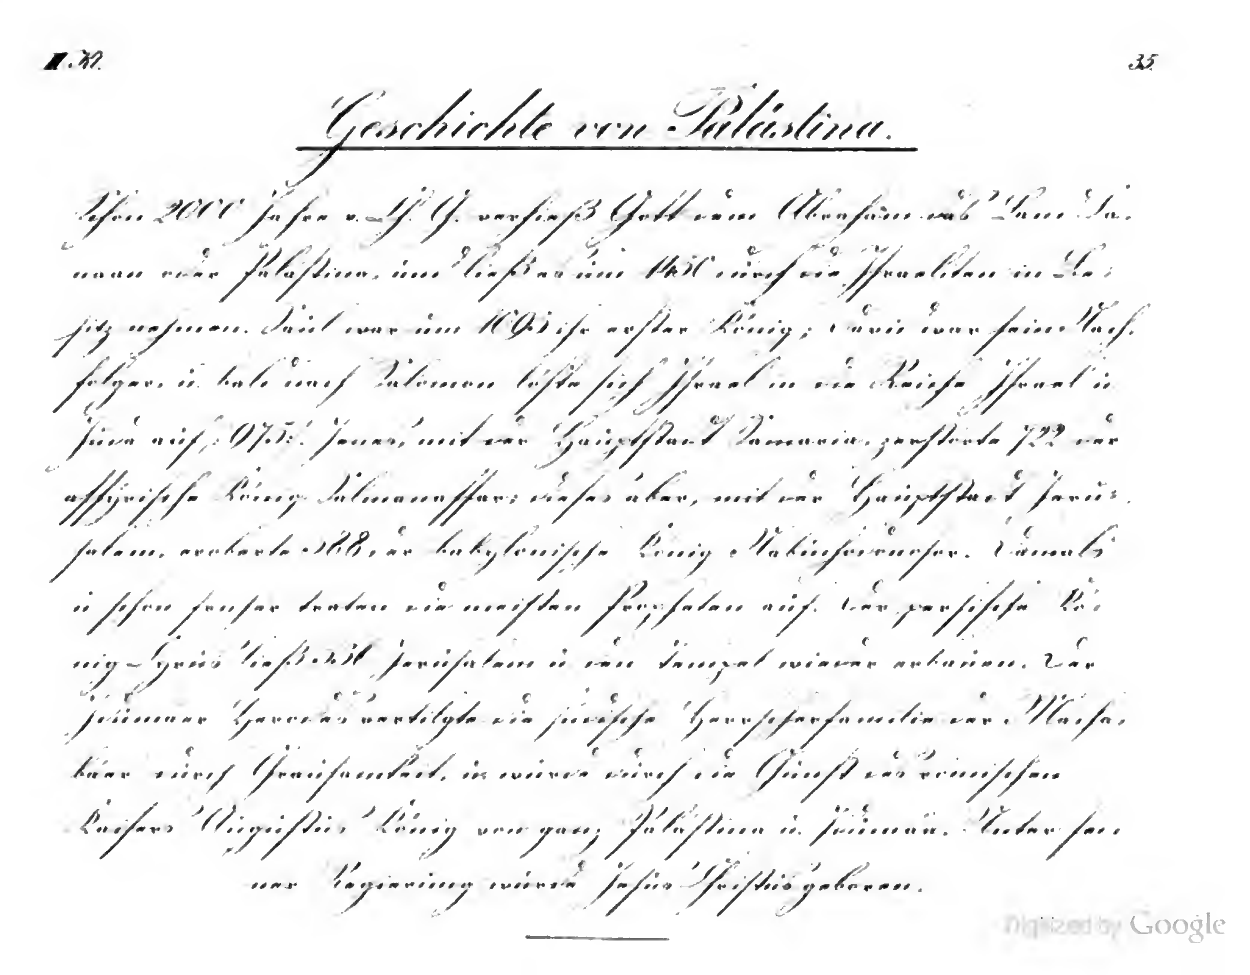 II. Kl. 35.
Geschichte von Palästina.
Schon 2000 Jahre v. Ch. G. verhieß Gott dem Abraham das Land Ca-
naan oder Palästina, und ließ es um 1450 durch die Israeliten in Be-
sitz nehmen. Saul war um 1095 ihr erster König; David war sein Nach-
folger, u. bald nach Salomon löste sich Israel in die Reiche Israel u.
Juda auf, 975. Jenes, mit der Hauptstadt Samaria, zerstörte 722 der
assyrische König Salmanassar; dieses aber, mit der Hauptstadt Jeru-
salem, eroberte 588 der babylonische König Nabuchodonosor. Damals
u. schon früher traten die meisten Propheten auf. Der persische Kö-
nig Cyrus ließ 536 Jerusalem u. den Tempel wieder erbauen. Der
Idumäer Herodes vertilgte die jüdische Herrscherfamilie der Macha-
bäer durch Grausamkeit, u. wurde durch die Gunst des römischen
Kaisers Augustus König von ganz Palästina u. Idumäa. Unter sei-
ner Regierung wurde Jesus Christus geboren.
Digitized by Google